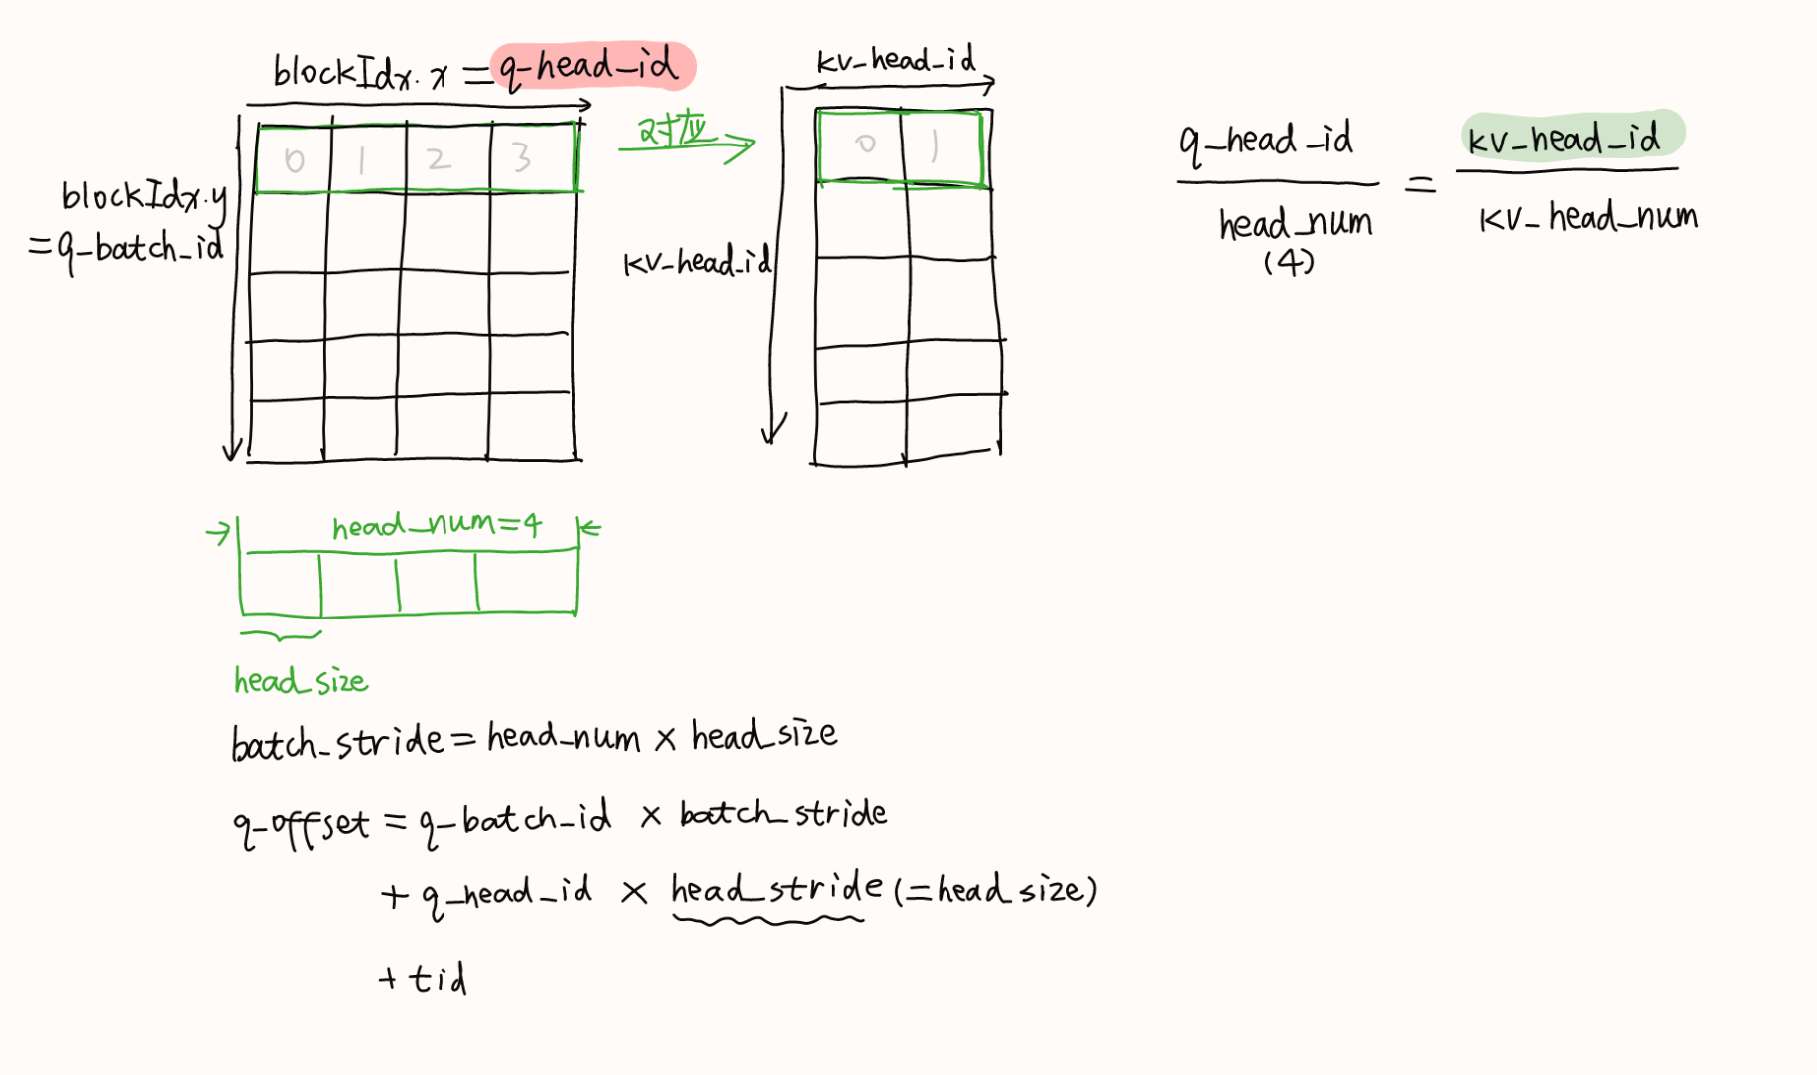 blockIdx.x = q-head_id
blockIdx.y
=q-batch_id
0 1 2 3
对应
kv_head_id
kv-head_id
0 1
q_head_id / head_num (4) = kv_head_id / kv-head_num
head_num=4
head_size
batch_stride = head_num × head_size
q-offset = q-batch_id × batch_stride
+ q_head_id × head_stride (=head_size)
+ tid